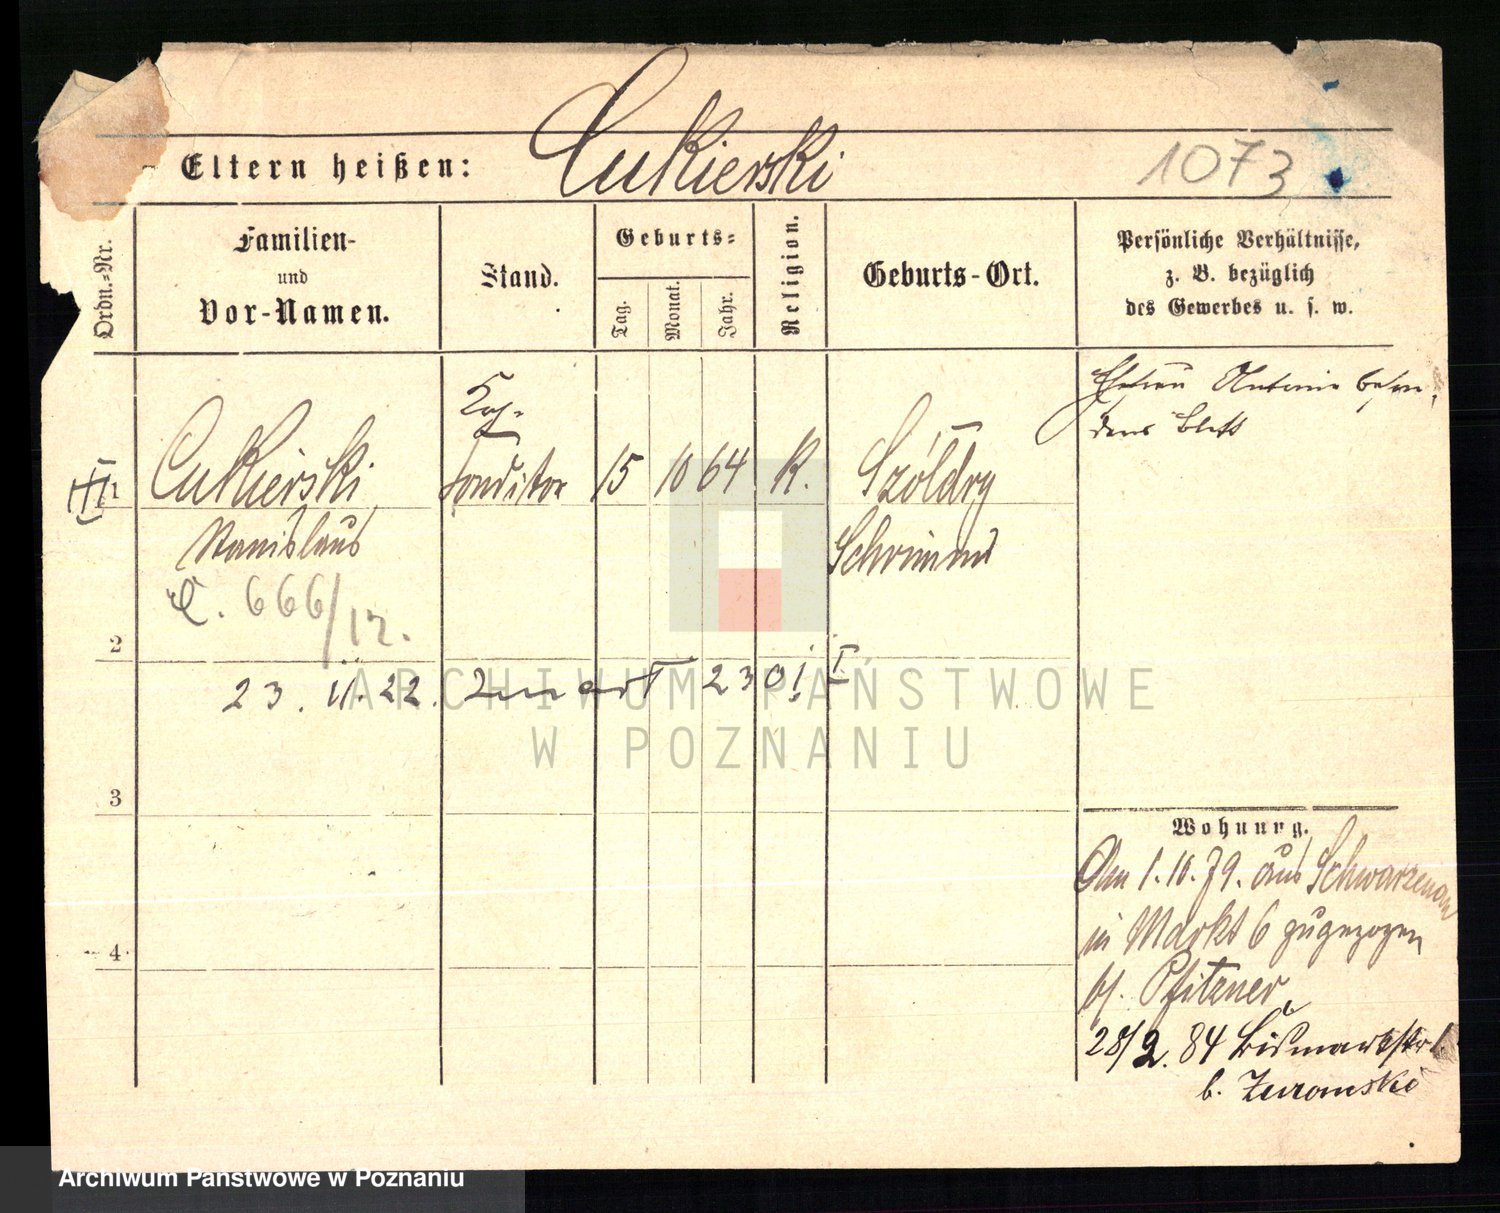 Eltern heißen: Cukierski
1073
Ordn.-Nr.
Familien-
und
Vor-Namen.
Stand.
Geburts-
Tag.
Monat.
Jahr.
Religion.
Geburts-Ort.
Persönliche Verhältnisse,
z. B. bezüglich
des Gewerbes u. s. w.
Ehefrau Antonie beson-
deres Blatt
Cukierski
Stanislaus
Conditor
15 10 64 K.
Szóldry
Schrimm
666/12.
2
23. 11. 22.
ARCHIWUM PAŃSTWOWE
W POZNANIU
3
4
Wohnung.
Am 1.10.79. aus Schwarzenau
in Markt 6 zugezogen
b/. Pfitzner
28/2. 84 Bismarkstr 1.
b. Zuromski
Archiwum Państwowe w Poznaniu